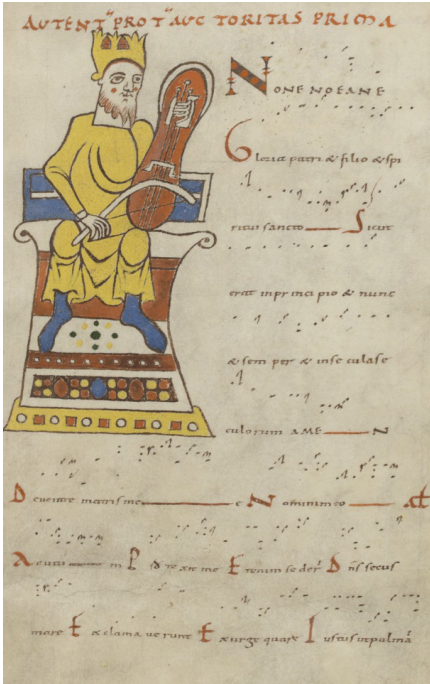 AUTENTꝰ PROTꝰ AUCTORITAS PRIMA
NONENOEANE
Gloria patri & filio & spi
ritui sancto Sicut
erat inprincipio & nunc
& semper & inse culase
culorum AMEN
Deventre matris me e Nominum eo
m Et enim seder Dns secus
mare Exclama verunt Exurge quare Iustus utpalma